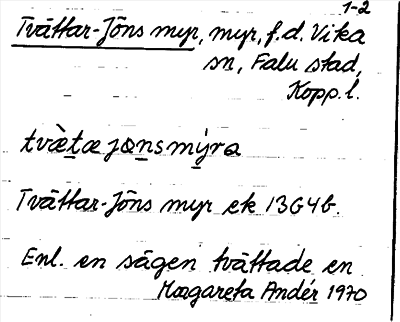 1-2
Tvättar-Jöns myr, myr, f.d. Vika
sn, Falu stad,
Kopp. l.
tvæ̀tæ jɷnsmýra
Tvättar-Jöns myr ek 13G4b.
Enl. en sägen tvättade en
Margareta Andér 1970